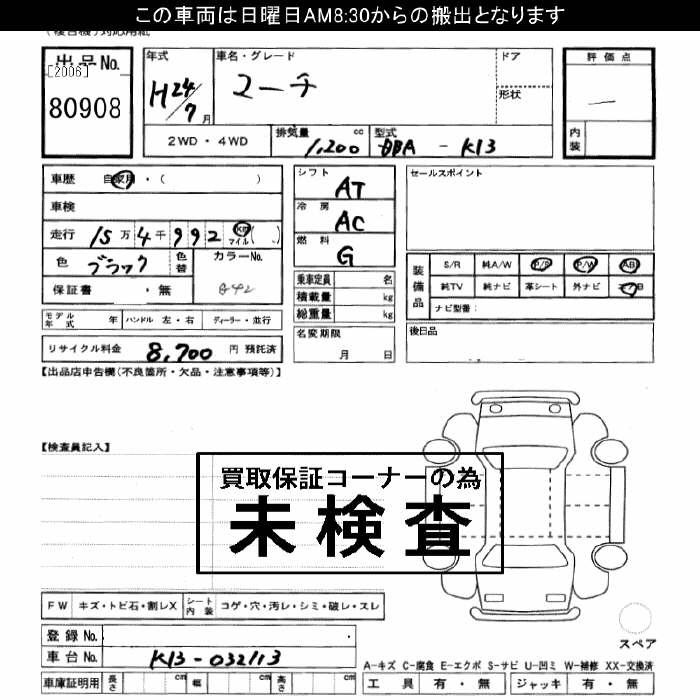 この車両は日曜日AM8:30からの搬出となります
出品No.
[2006]
80908
年式
H24/7月
車名・グレード
マーチ
ドア
形状
評価点
―
内装
2WD・4WD
排気量 cc
1,200
型式
DBA - K13
車歴 自家用・( )
車検
走行 15万4千992 km マイル( )
色 ブラック 色替
カラーNo.
保証書 ・無
シフト AT
冷房 AC
燃料 G
乗車定員 名
積載量 kg
総重量 kg
名変期限
月 日
セールスポイント
装備品
S/R 純A/W P/S P/W AB
純TV 純ナビ 革シート 外ナビ
ナビ型番:
後日品
モデル年式 年 ハンドル 左・右 ディーラー・並行
リサイクル料金 8,700 円 預託済
【出品店申告欄(不良箇所・欠品・注意事項等)】
【検査員記入】
買取保証コーナーの為
未検査
FW キズ・トビ石・割レX シート内装 コゲ・穴・汚レ・シミ・破レ・スレ
登録No.
車台No. K13-032113
車庫証明用 長さ cm 幅 cm 高さ cm
スペア
A-キズ C-腐食 E-エクボ S-サビ U-凹ミ W-補修 XX-交換済
工具 有・無 ジャッキ 有・無